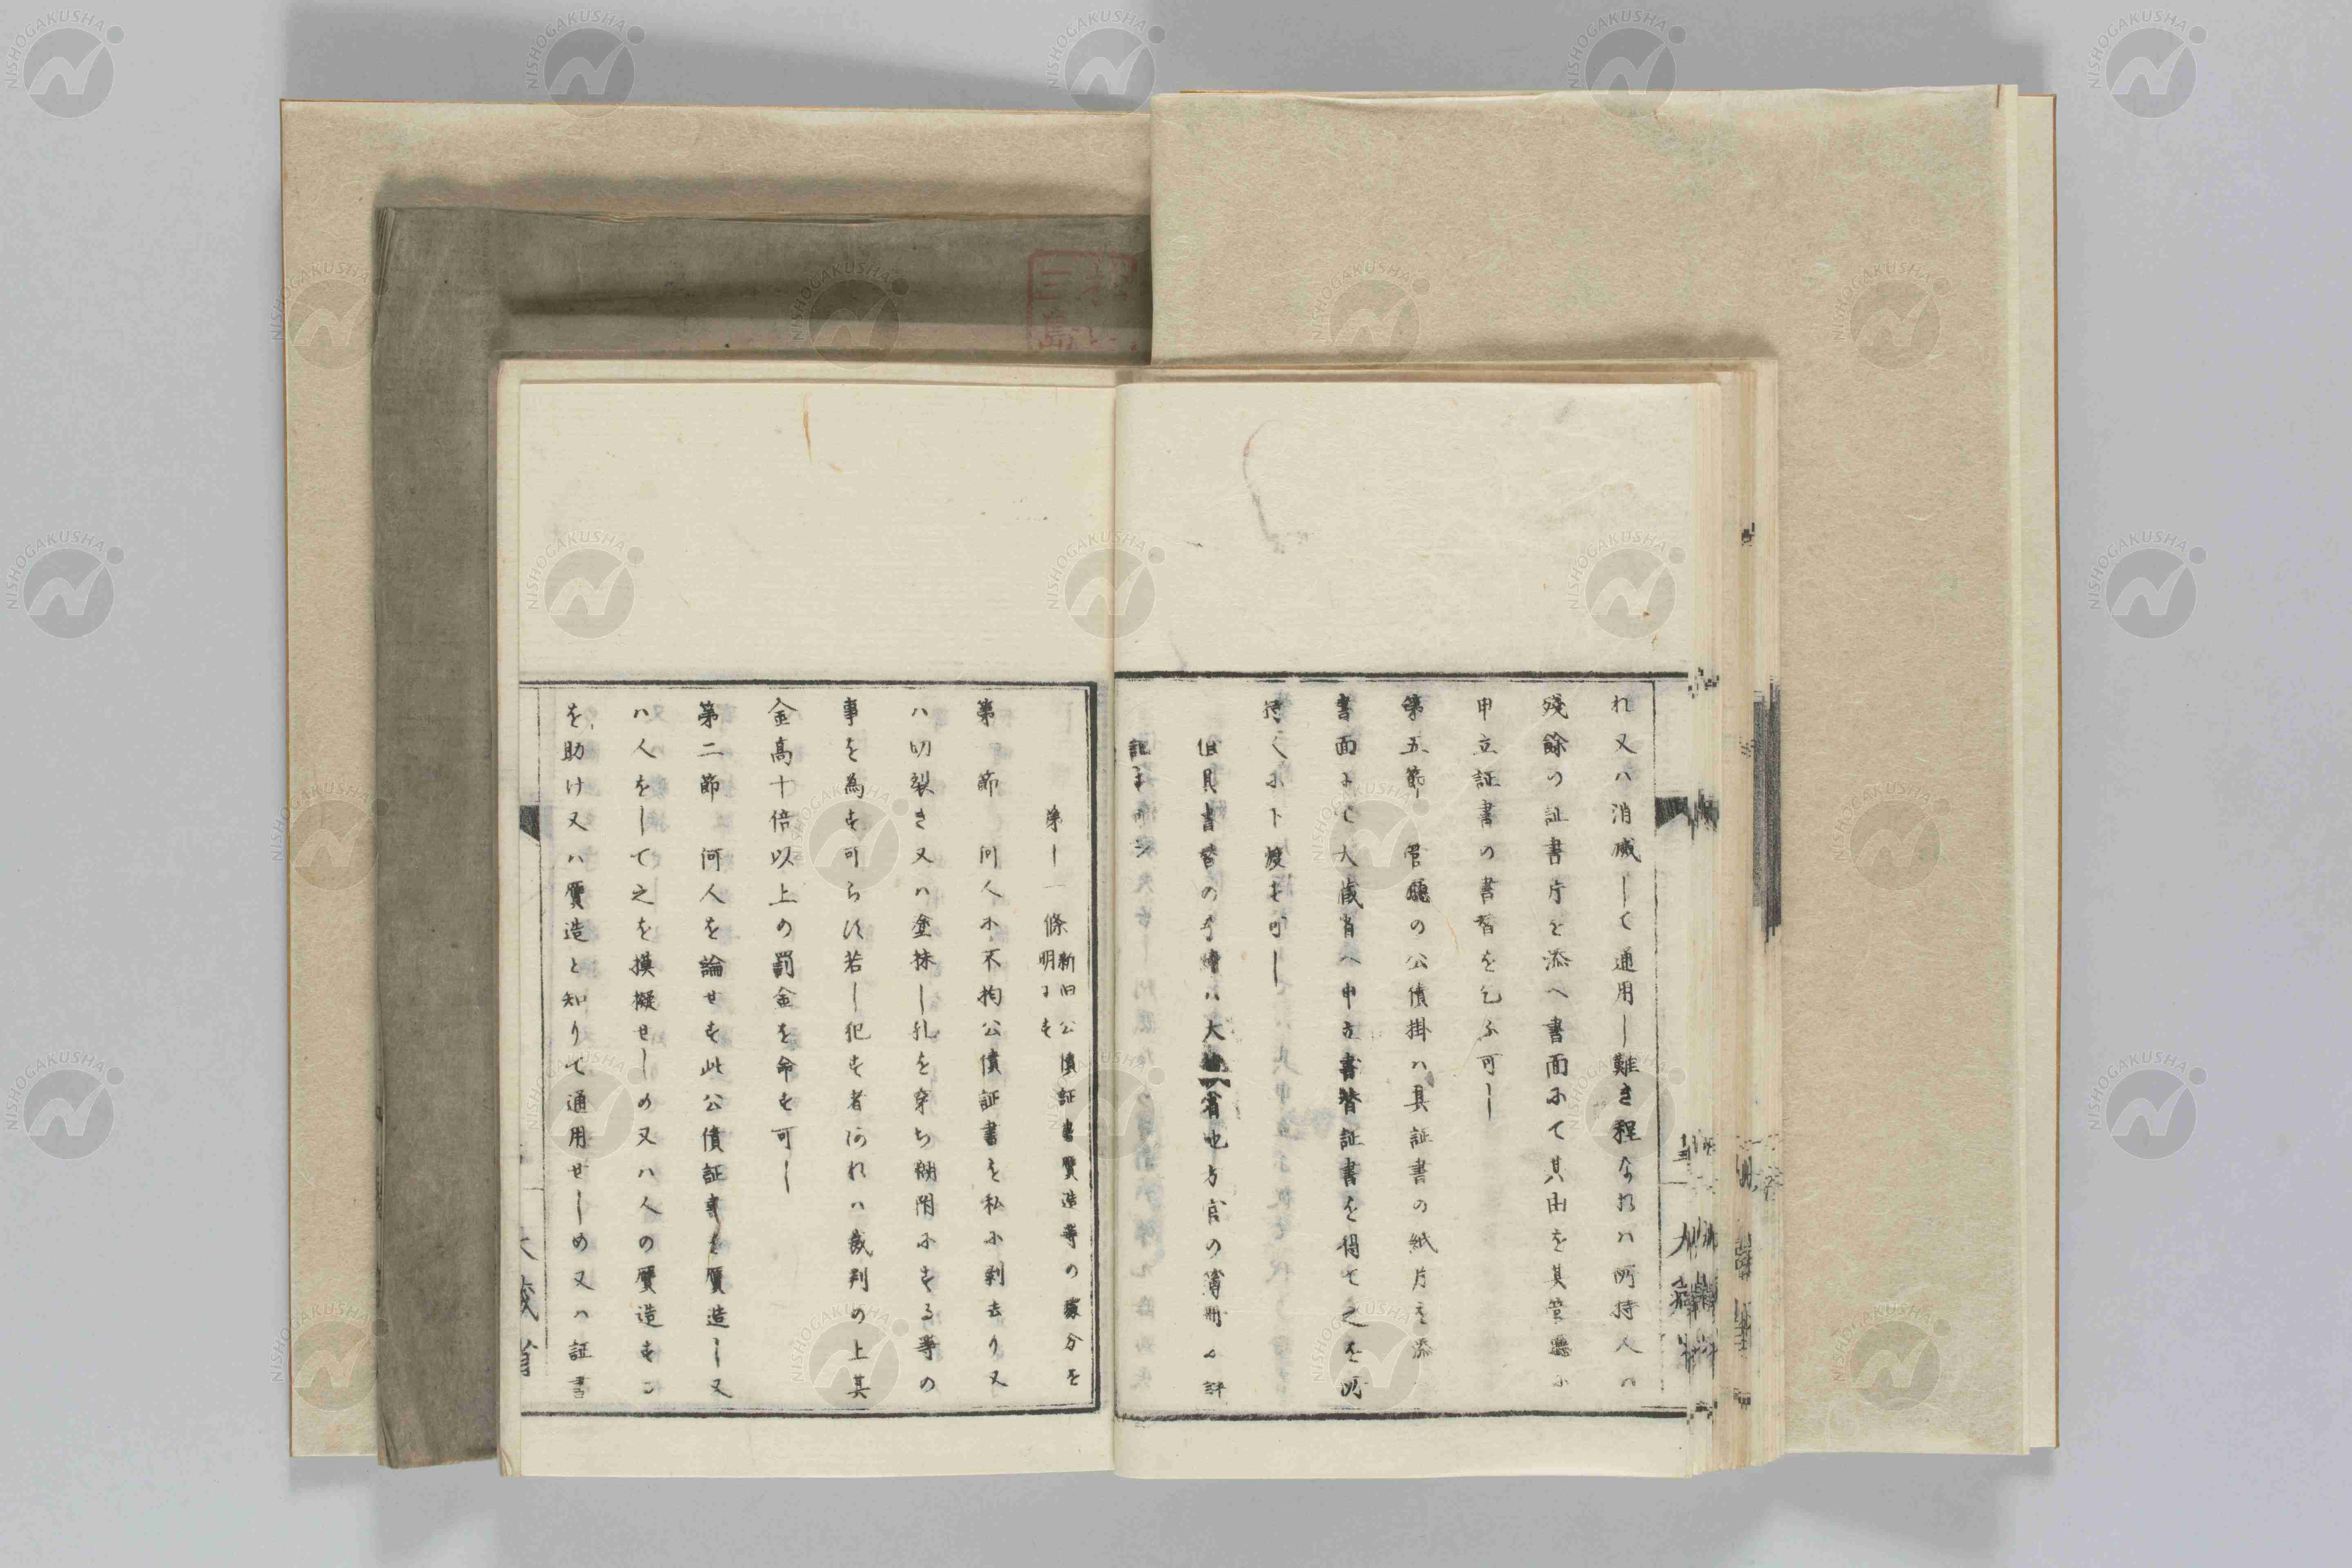 れ又ハ消滅して通用し難き程なれハ所持人ハ
残餘の証書片を添へ書面にて其由を其管廳に
申立証書の書替を乞ふ可し
第五節 管廳の公債掛ハ其証書の紙片を添
書面にて大蔵省へ申立書替証書を得て之を所
持人に下渡す可し
但其書替の手續ハ大蔵省地方官の簿冊に詳
記す可
第 條 新旧公債証書贋造等の處分を
明にす
第 節 何人に不拘公債証書を私に剥去り又
ハ切裂き又ハ塗抹し孔を穿ち糊附にする等の
事を為す可らす若し犯す者あれハ裁判の上其
金高十倍以上の罰金を命す可し
第二節 何人を論せす此公債証書を贋造し又
ハ人をして之を摸擬せしめ又ハ人の贋造するこ
を助け又ハ贋造と知りて通用せしめ又ハ証書
大蔵省
NISHOGAKUSHA